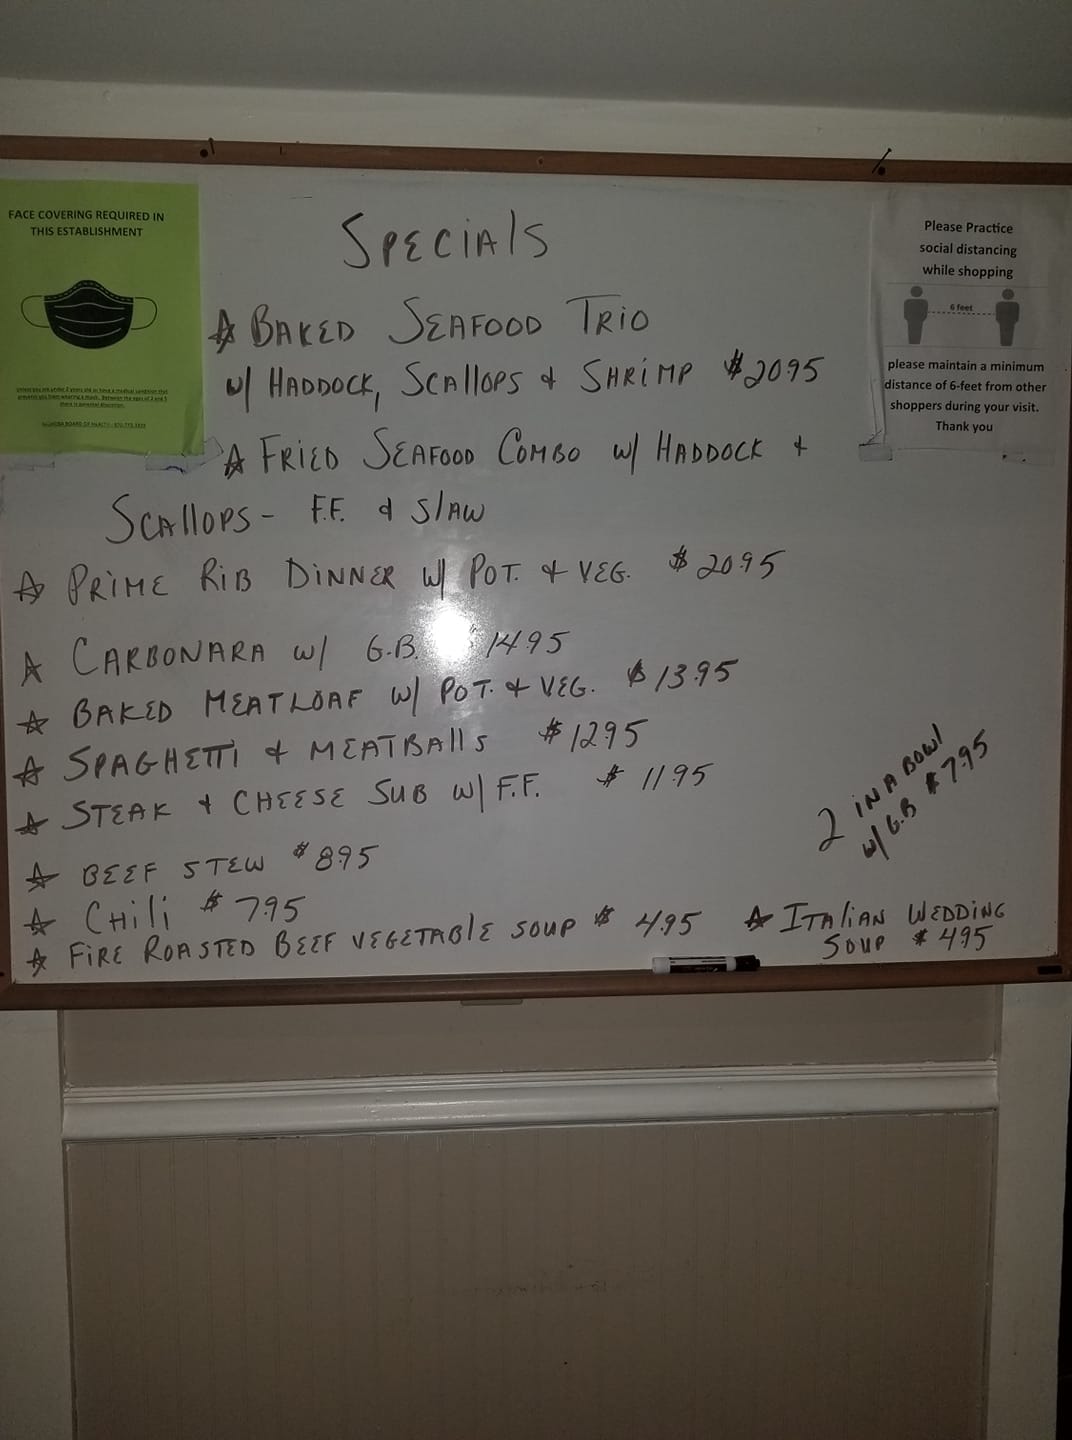 FACE COVERING REQUIRED IN
THIS ESTABLISHMENT
Please Practice
social distancing
while shopping
6 feet
please maintain a minimum
distance of 6-feet from other
shoppers during your visit.
Thank you
SPECIAlS
BAKED SEAFOOD TRIO
w/ HADDOCK, SCALLOPS & SHRiMP $2095
FRIED SEAFOOD COMBO w/ HADDOCK &
SCAllOPS- F.F. & SlAW
PRIME RIB DINNER w/ POT. & VEG. $2095
CARBONARA w/ G.B. $1495
BAKED MEATLOAF w/ POT. & VEG. $1395
SPAGHETTI & MEATBAllS $1295
STEAK & CHEESE SUB w/ F.F. $1195
2 IN A BOWl
w/ G.B $795
BEEF STEW $895
CHili $795
FIRE ROASTED BEEF VEGETABlE SOUP $495
ITAliAN WEDDING
SOUP $495